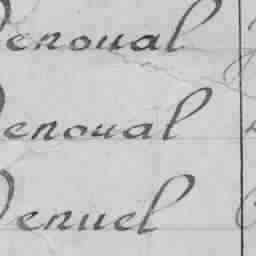 enoual
enoual
enuel